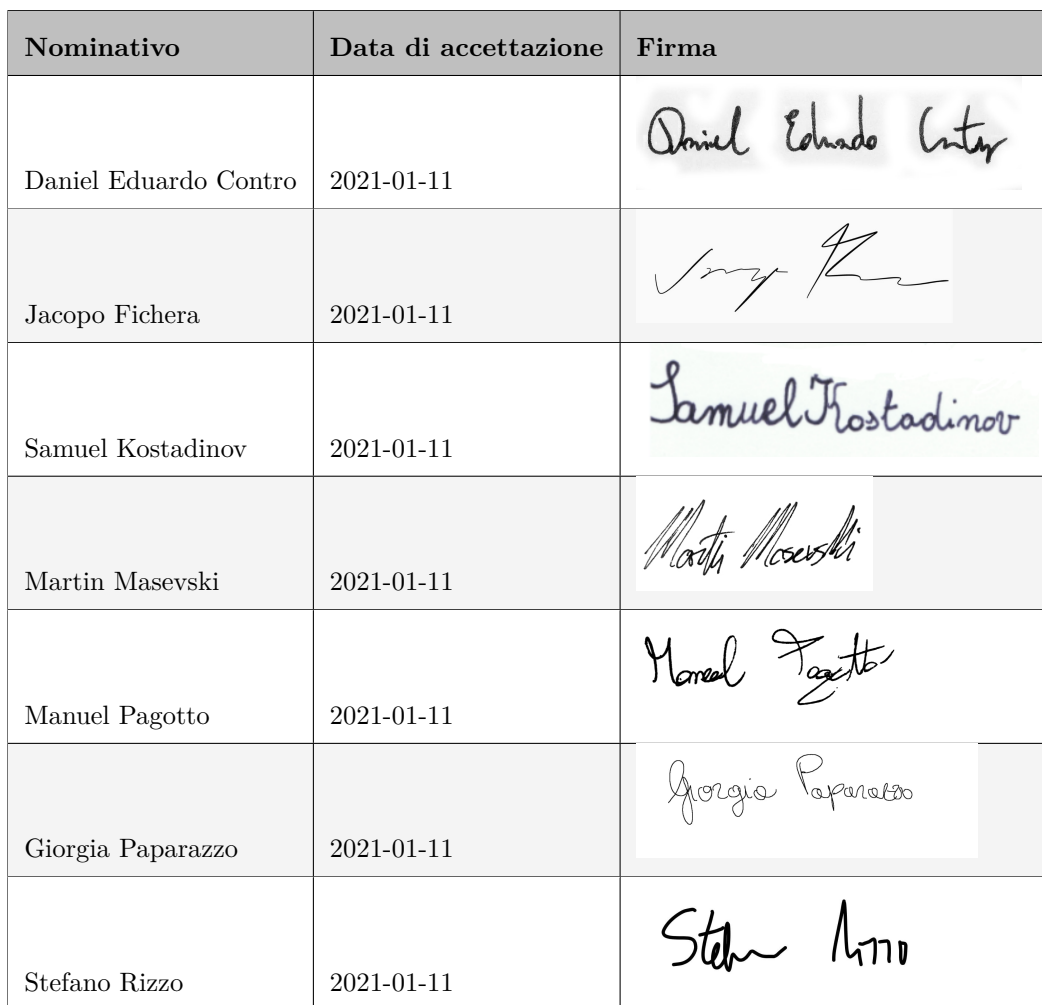 Nominativo Data di accettazione Firma
Daniel Eduardo Contro 2021-01-11 Daniel Eduardo Contro
Jacopo Fichera 2021-01-11
Samuel Kostadinov 2021-01-11 Samuel Kostadinov
Martin Masevski 2021-01-11 Martin Masevski
Manuel Pagotto 2021-01-11 Manuel Pagotto
Giorgia Paparazzo 2021-01-11 Giorgia Paparazzo
Stefano Rizzo 2021-01-11 Rizzo